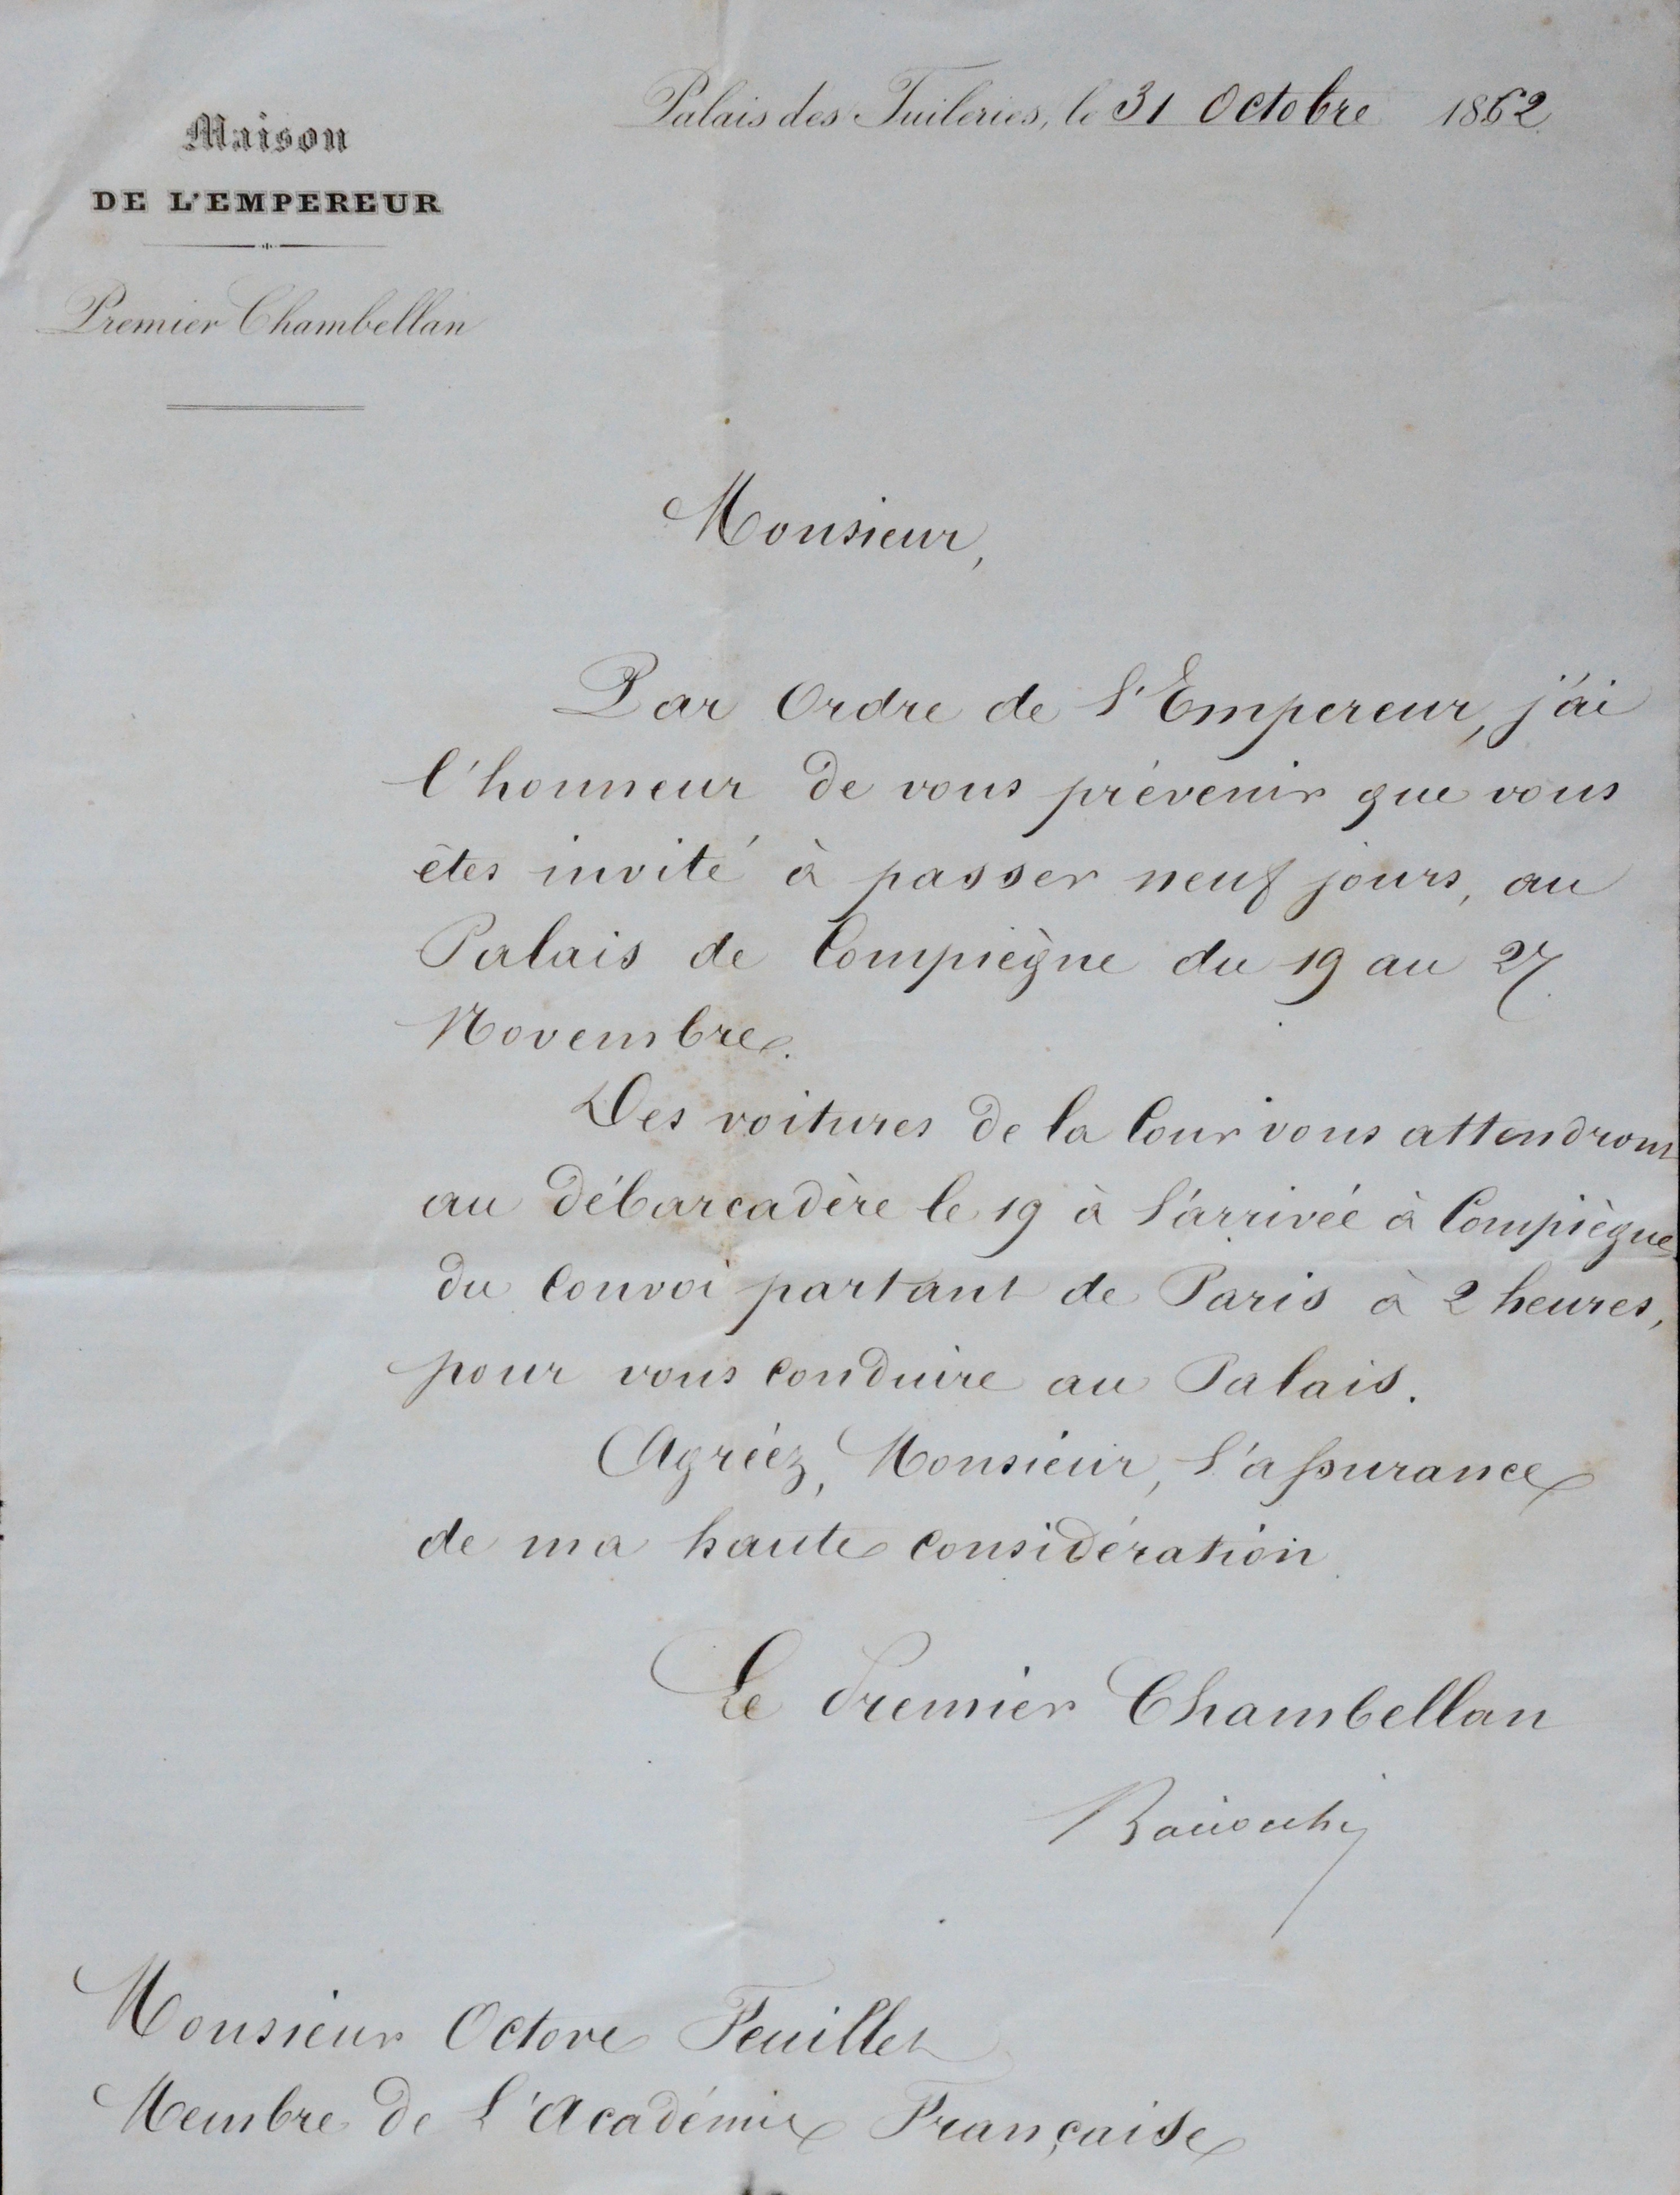 Palais des Tuileries, le 31 Octobre 1862.
Maison
DE L'EMPEREUR
Premier Chambellan
Monsieur,
Par Ordre de l'Empereur, j'ai
l'honneur de vous prévenir que vous
êtes invité à passer neuf jours, au
Palais de Compiègne du 19 au 27
Novembre.
Des voitures de la Cour vous attendront
au débarcadère le 19 à l'arrivée à Compiègne
du Convoi partant de Paris à 2 heures,
pour vous conduire au Palais.
Agréez, Monsieur, l'assurance
de ma haute considération.
Le Premier Chambellan
Baciocchi
Monsieur Octave Feuillet
Membre de l'Académie Française